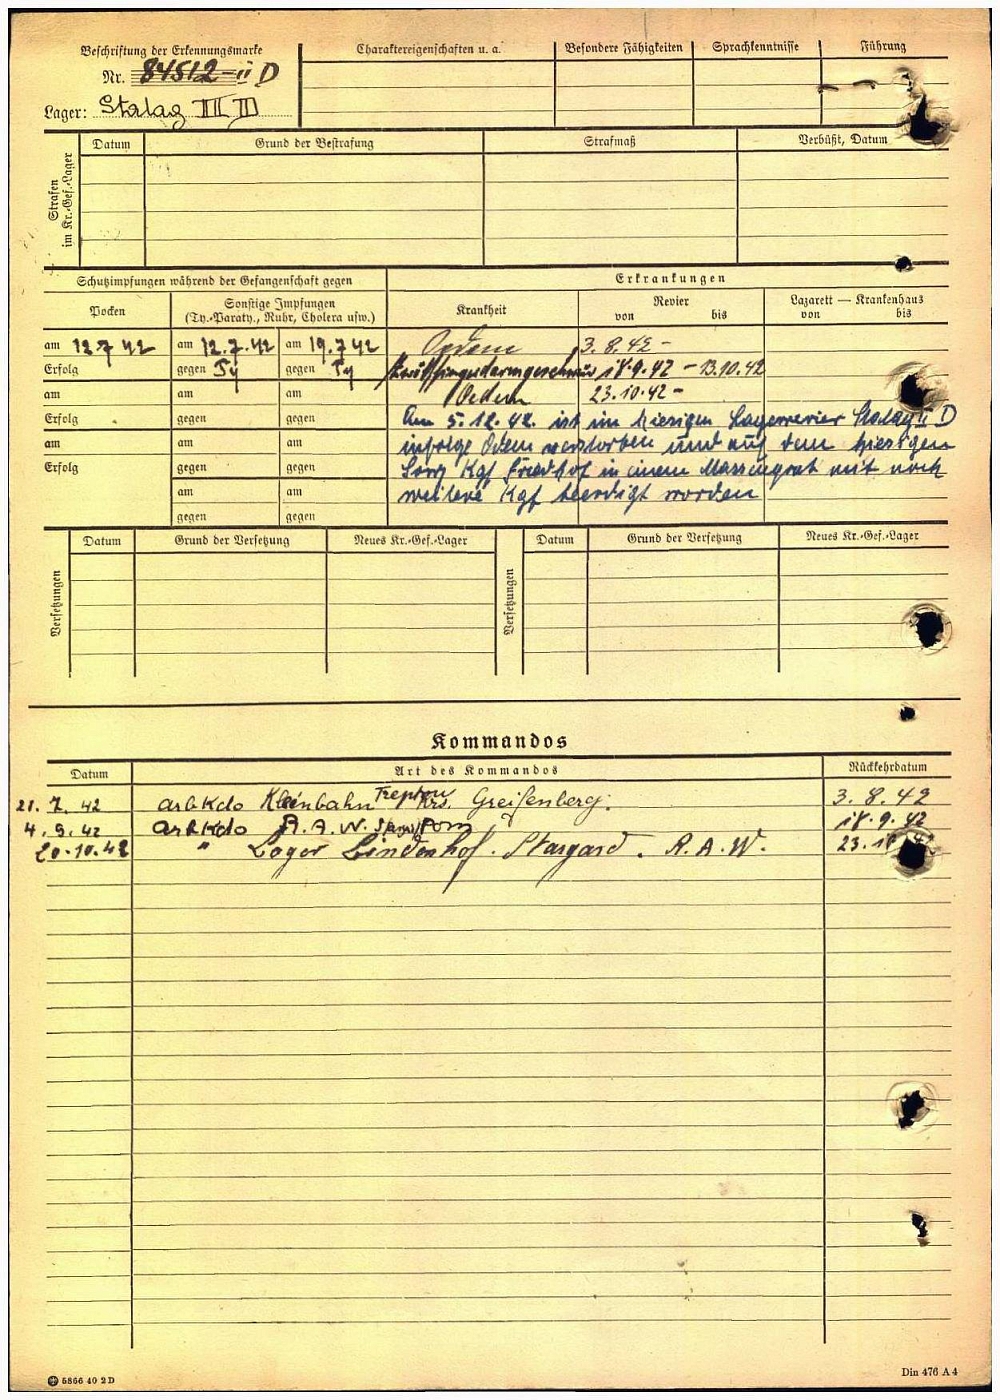 Beschriftung der Erkennungsmarke
Nr. 84512-II D
Lager: Stalag II D
Charaktereigenschaften u. a.
Besondere Fähigkeiten
Sprachkenntnisse
Führung
Strafen im Kr.-Gef.-Lager
Datum
Grund der Bestrafung
Strafmaß
Verbüßt, Datum
Schutzimpfungen während der Gefangenschaft gegen
Erkrankungen
Pocken
Sonstige Impfungen
(Ty.-Paraty., Ruhr, Cholera usw.)
Krankheit
Revier
von bis
Lazarett — Krankenhaus
von bis
am 12.7.42 am 12.7.42 am 19.7.42 Oedem 3.8.42 -
Erfolg gegen Ty gegen Ty Zwölffingerdarmgeschwür 18.9.42 - 13.10.42
am am am Oedem 23.10.42 -
Erfolg gegen gegen Am 5.12.42. ist im hiesigen Lagerrevier Stalag II D
am am am infolge Ödem verstorben und auf dem hiesigen
Erfolg gegen gegen Sowj Kgf Friedhof in einem Massengrab mit noch
am am weitere Kgf beerdigt worden
gegen gegen
Versetzungen
Datum
Grund der Versetzung
Neues Kr.-Gef.-Lager
Versetzungen
Datum
Grund der Versetzung
Neues Kr.-Gef.-Lager
Kommandos
Datum Art des Kommandos Rückkehrdatum
21. 7. 42 ArbKdo Kleinbahn Treptow Krs. Greifenberg. 3. 8. 42
4. 9. 42 ArbKdo R.A.W. Pom 18. 9. 42
20.10.42 " Lager Lindenhof. Stargard. R.A.W. 23.10.42
5866 40 2D
Din 476 A 4